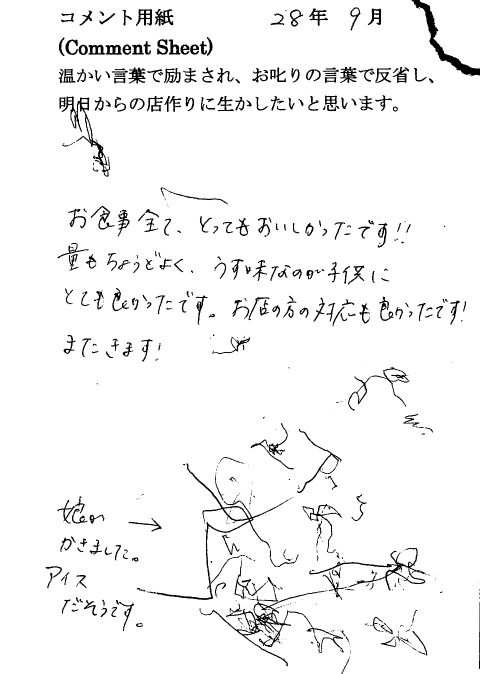 コメント用紙 28年 9月
(Comment Sheet)
温かい言葉で励まされ、お叱りの言葉で反省し、
明日からの店作りに生かしたいと思います。
お食事全て、とってもおいしかったです!!
量もちょうどよく、うす味なのが子供に
とても良かったです。お店の方の対応も良かったです!
またきます!
娘が →
かきました。
アイス
だそうです。